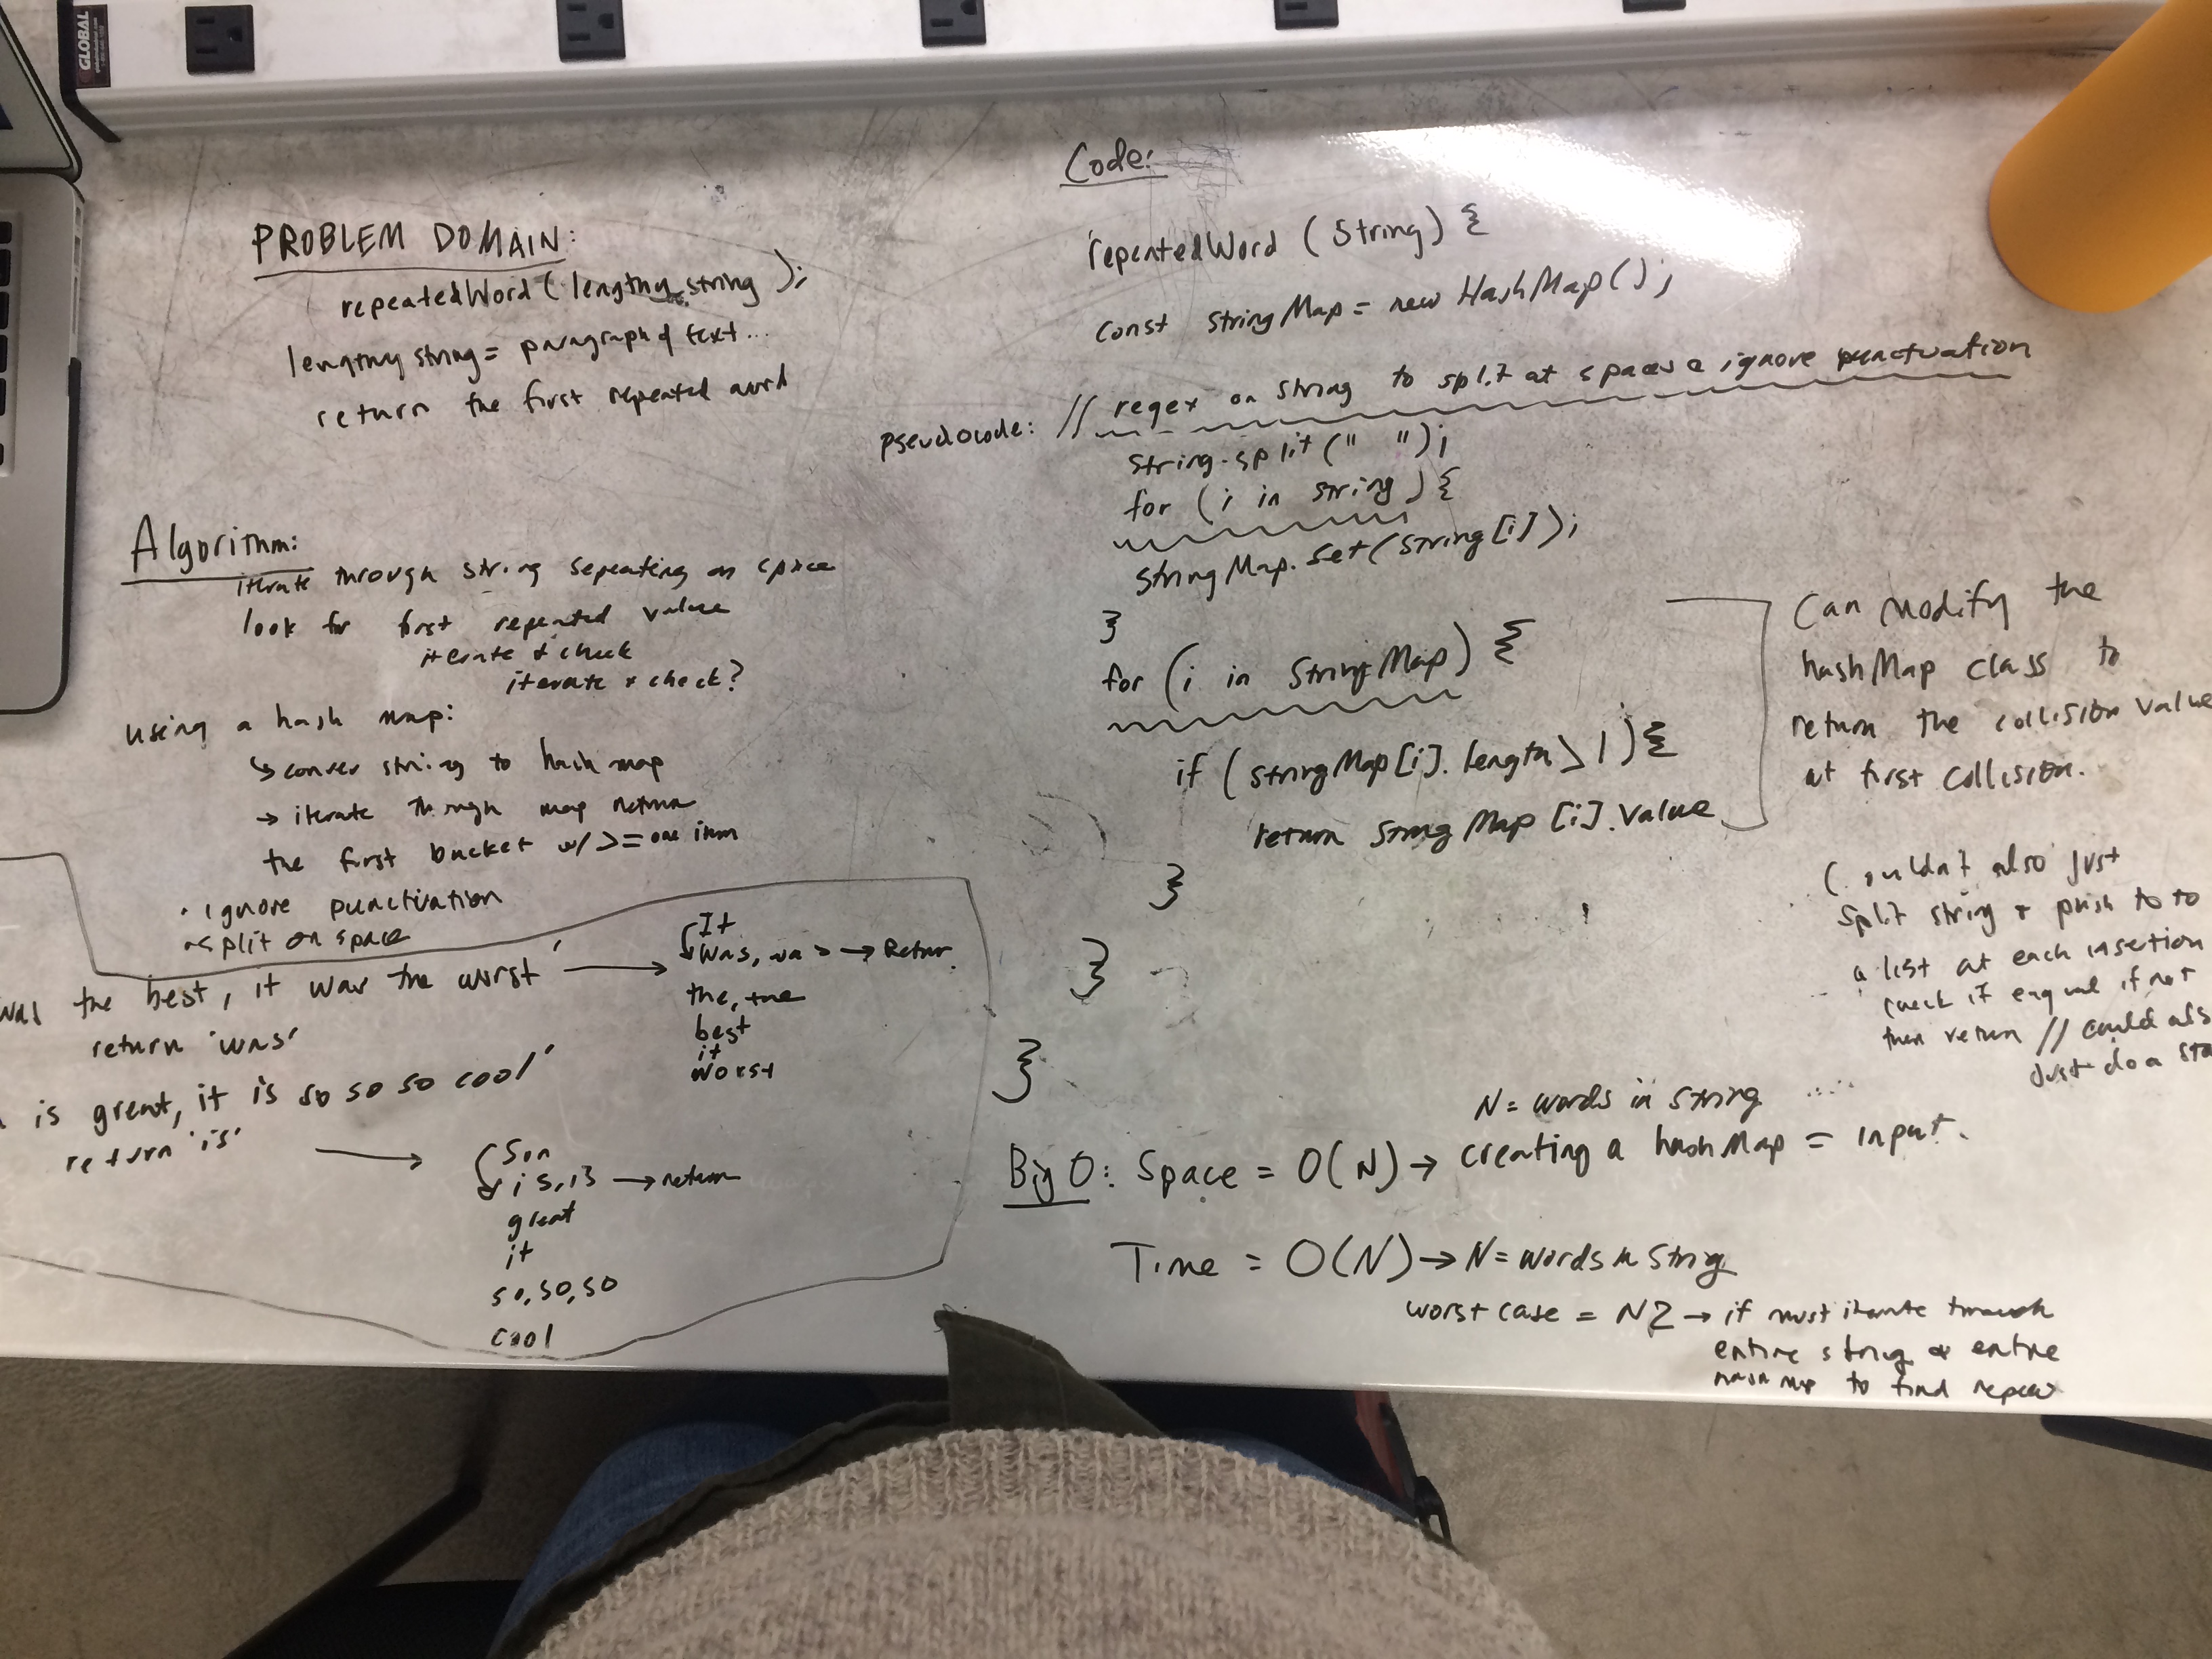 GLOBAL
PROBLEM DOMAIN:
repeatedWord (lengthy string);
lengthy string = paragraph of text...
return the first repeated word
Algorithm:
iterate through string seperating on space
look for first repeated value
iterate & check
iterate & check?
using a hash map:
↳ conver string to hash map
→ iterate through map return
the first bucket w/ >= one item
· ignore punctivation
split on space
the best, it was the worst'
return 'was'
→ { It
was, was → Return
the, the
best
it
worst
is great, it is so so so cool'
return 'is'
→ {
is, is → return
great
it
so, so, so
cool
Code:
repeatedWord (string) {
const stringMap = new HashMap();
pseudocode: // regex on string to split at spaces & ignore punctuation
string.split(" ");
for (i in string) {
stringMap.set(string[i]);
}
for (i in stringMap) {
if (stringMap[i].length > 1) {
return stringMap[i].value
}
}
}
Can modify the
hashMap class to
return the collision value
at first collision.
(couldn't also just
split string & push to to
a list at each insertion
check if equal if not
then return // could als
just do a sta
N = words in string
Big O: Space = O(N) → creating a hashMap = input.
Time = O(N) → N = words in string
worst case = N2 → if must iterate through
entire string & entire
hash map to find repeat